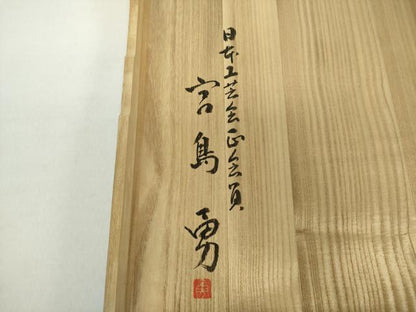 日本工芸会正会員
宮島勇